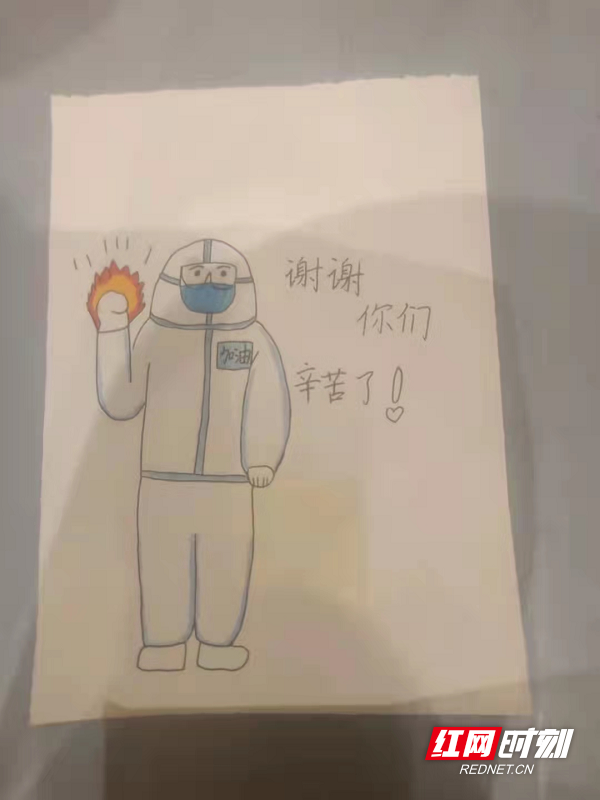 谢谢
你们
加油
辛苦了！
红网时刻
REDNET.CN